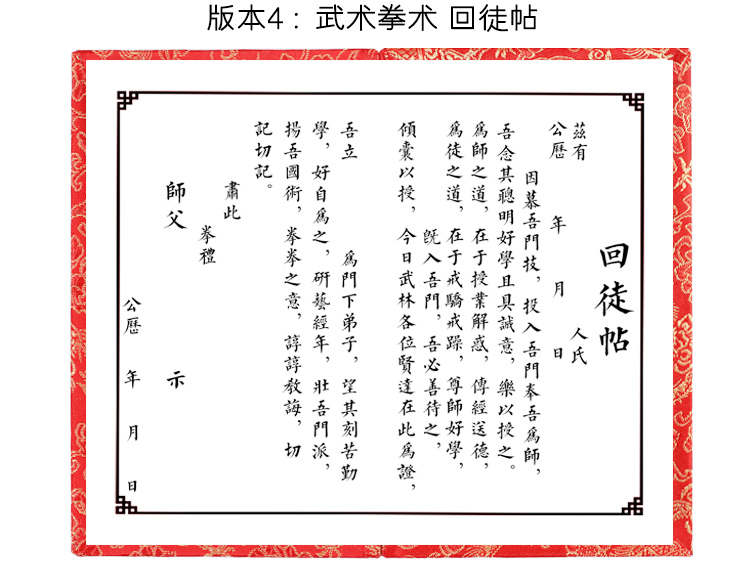 版本4：武术拳术 回徒帖
回徒帖
茲有 人氏
公曆 年 月 日
因慕吾門技，投入吾門奉吾爲師，
吾念其聰明好學且具誠意，樂以授之。
爲師之道，在于授業解惑，傳經送德，
爲徒之道，在于戒驕戒躁，尊師好學，
既入吾門，吾必善待之，
傾囊以授，今日武林各位賢達在此爲證，
吾立 爲門下弟子，望其刻苦勤
學，好自爲之，研藝經年，壯吾門派，
揚吾國術，拳拳之意，諄諄教誨，切
記切記。
肅此
拳禮
師父 示
公曆 年 月 日